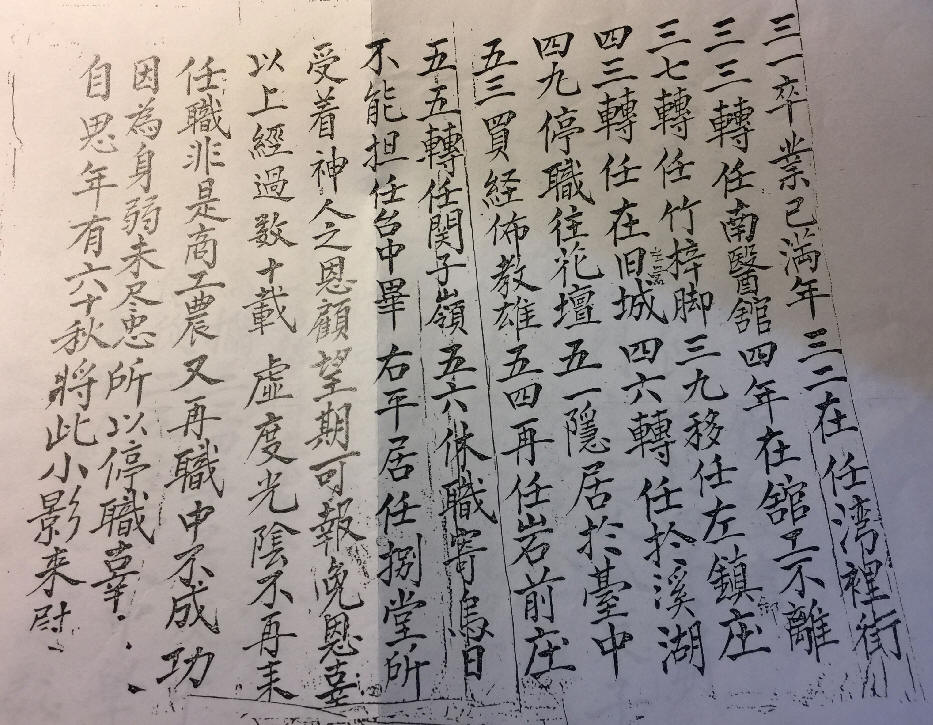 三一卒業已満年 三二在任湾裡街
三三轉任南醫舘 四年在舘工不離
三七轉任竹梓脚 三九移任左鎮庄
四三轉任在旧城 四六轉任於溪湖
四九停職往花壇 五一隱居於臺中
五三買経佈教雄 五四再任岩前庄
五五轉任関子嶺 五六休職寄鳥日
不能担任台中畢 右平居任捌堂所
受着神人之恩顧望期可報免恩喜
以上經過数十載 虚度光陰不再来
任職非是商工農 又再職中不成功
因為身弱未尽忠 所以停職辜
自思年有六十秋 將此小影来尉